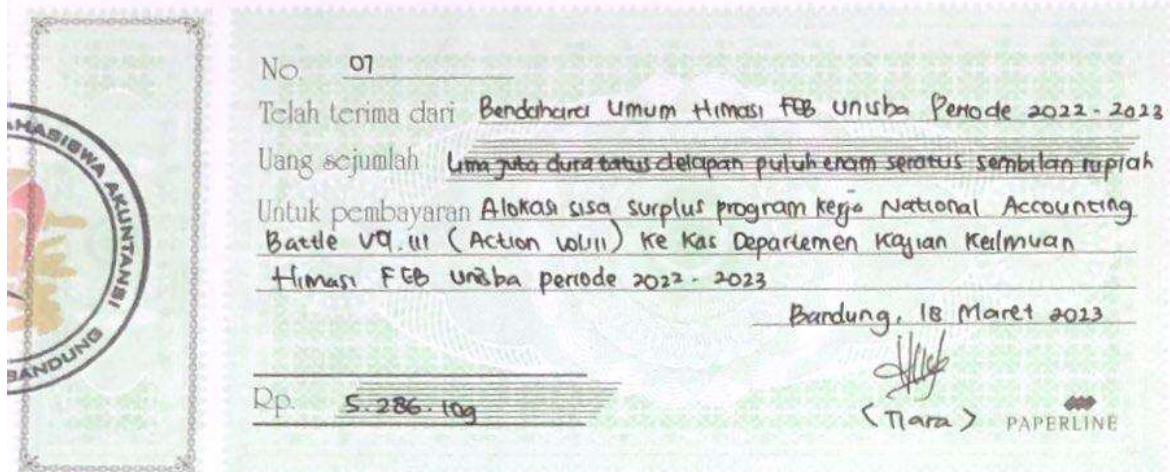 No. 07
Telah terima dari Bendahara Umum Himasi FEB Unisba Periode 2022 - 2023
Uang sejumlah Lima juta dua ratus delapan puluh enam seratus sembilan rupiah
Untuk pembayaran Alokasi sisa surplus program kerja National Accounting
Battle Vol. III (Action Vol. III) ke Kas Departemen Kajian Keilmuan
Himasi FEB Unisba periode 2022 - 2023
Bandung, 18 Maret 2023
Rp. 5.286.109
(Tiara)
PAPERLINE
MAHASISWA AKUNTANSI
BANDUNG